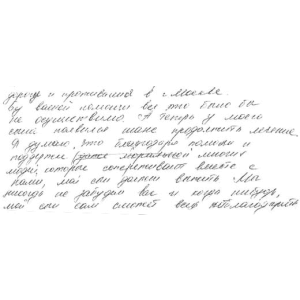 дорогу и проживания в г. Москве.
Без вашей помощи все это было бы
не осуществимо. А теперь у моего
сына появился шанс продолжить лечение.
Я думаю, что благодаря помощи и
поддержки (даже моральной) многих
людей, которые сопереживают вместе с
нами, мой сын должен выжить. Мы
никогда не забудем вас и когда нибудь,
мой сын сам сможет всех поблагодарить